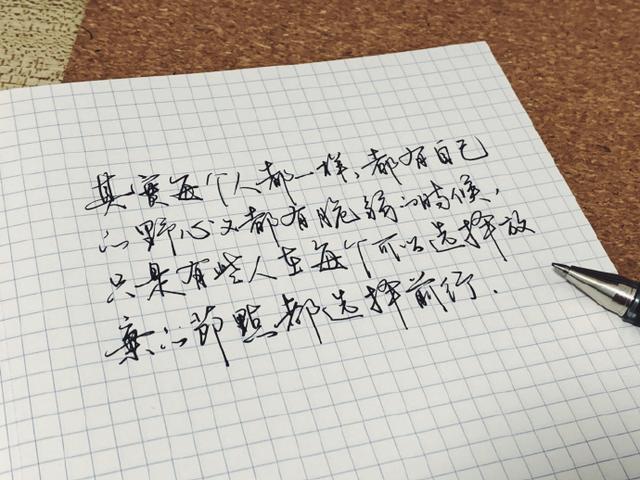 其實每个人都一样、都有自己
的野心又都有脆弱的時候,
只是有些人在每个可以选择放
棄的節點都选择前行.